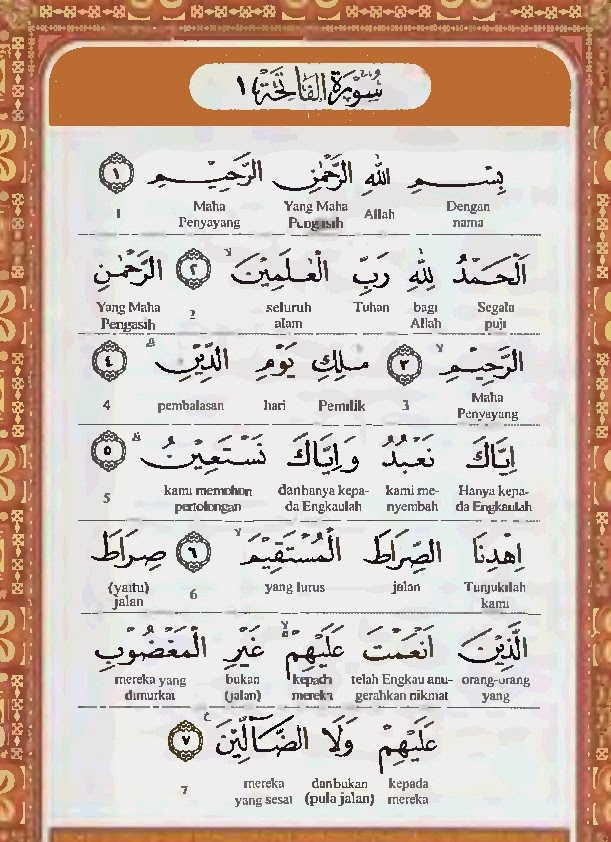 سُوْرَةُ الْفَاتِحَةِ ١
بِسْمِ اللّٰهِ الرَّحْمٰنِ الرَّحِيْمِ ١
Dengan nama Allah Yang Maha Pengasih Maha Penyayang 1
اَلْحَمْدُ لِلّٰهِ رَبِّ الْعٰلَمِيْنَۙ ٢ الرَّحْمٰنِ
Segala puji bagi Allah Tuhan seluruh alam 2 Yang Maha Pengasih
الرَّحِيْمِۙ ٣ مٰلِكِ يَوْمِ الدِّيْنِۗ ٤
Maha Penyayang 3 Pemilik hari pembalasan 4
اِيَّاكَ نَعْبُدُ وَاِيَّاكَ نَسْتَعِيْنُۗ ٥
Hanya kepa-da Engkaulah kami me-nyembah dan hanya kepa-da Engkaulah kami memohon pertolongan 5
اِهْدِنَا الصِّرَاطَ الْمُسْتَقِيْمَۙ ٦ صِرَاطَ
Tunjukilah kami jalan yang lurus 6 (yaitu) jalan
الَّذِيْنَ اَنْعَمْتَ عَلَيْهِمْ ەۙ غَيْرِ الْمَغْضُوْبِ
orang-orang yang telah Engkau anu-gerahkan nikmat kepada mereka bukan (jalan) mereka yang dimurkai
عَلَيْهِمْ وَلَا الضَّاۤلِّيْنَ ٧
kepada mereka dan bukan (pula jalan) mereka yang sesat 7